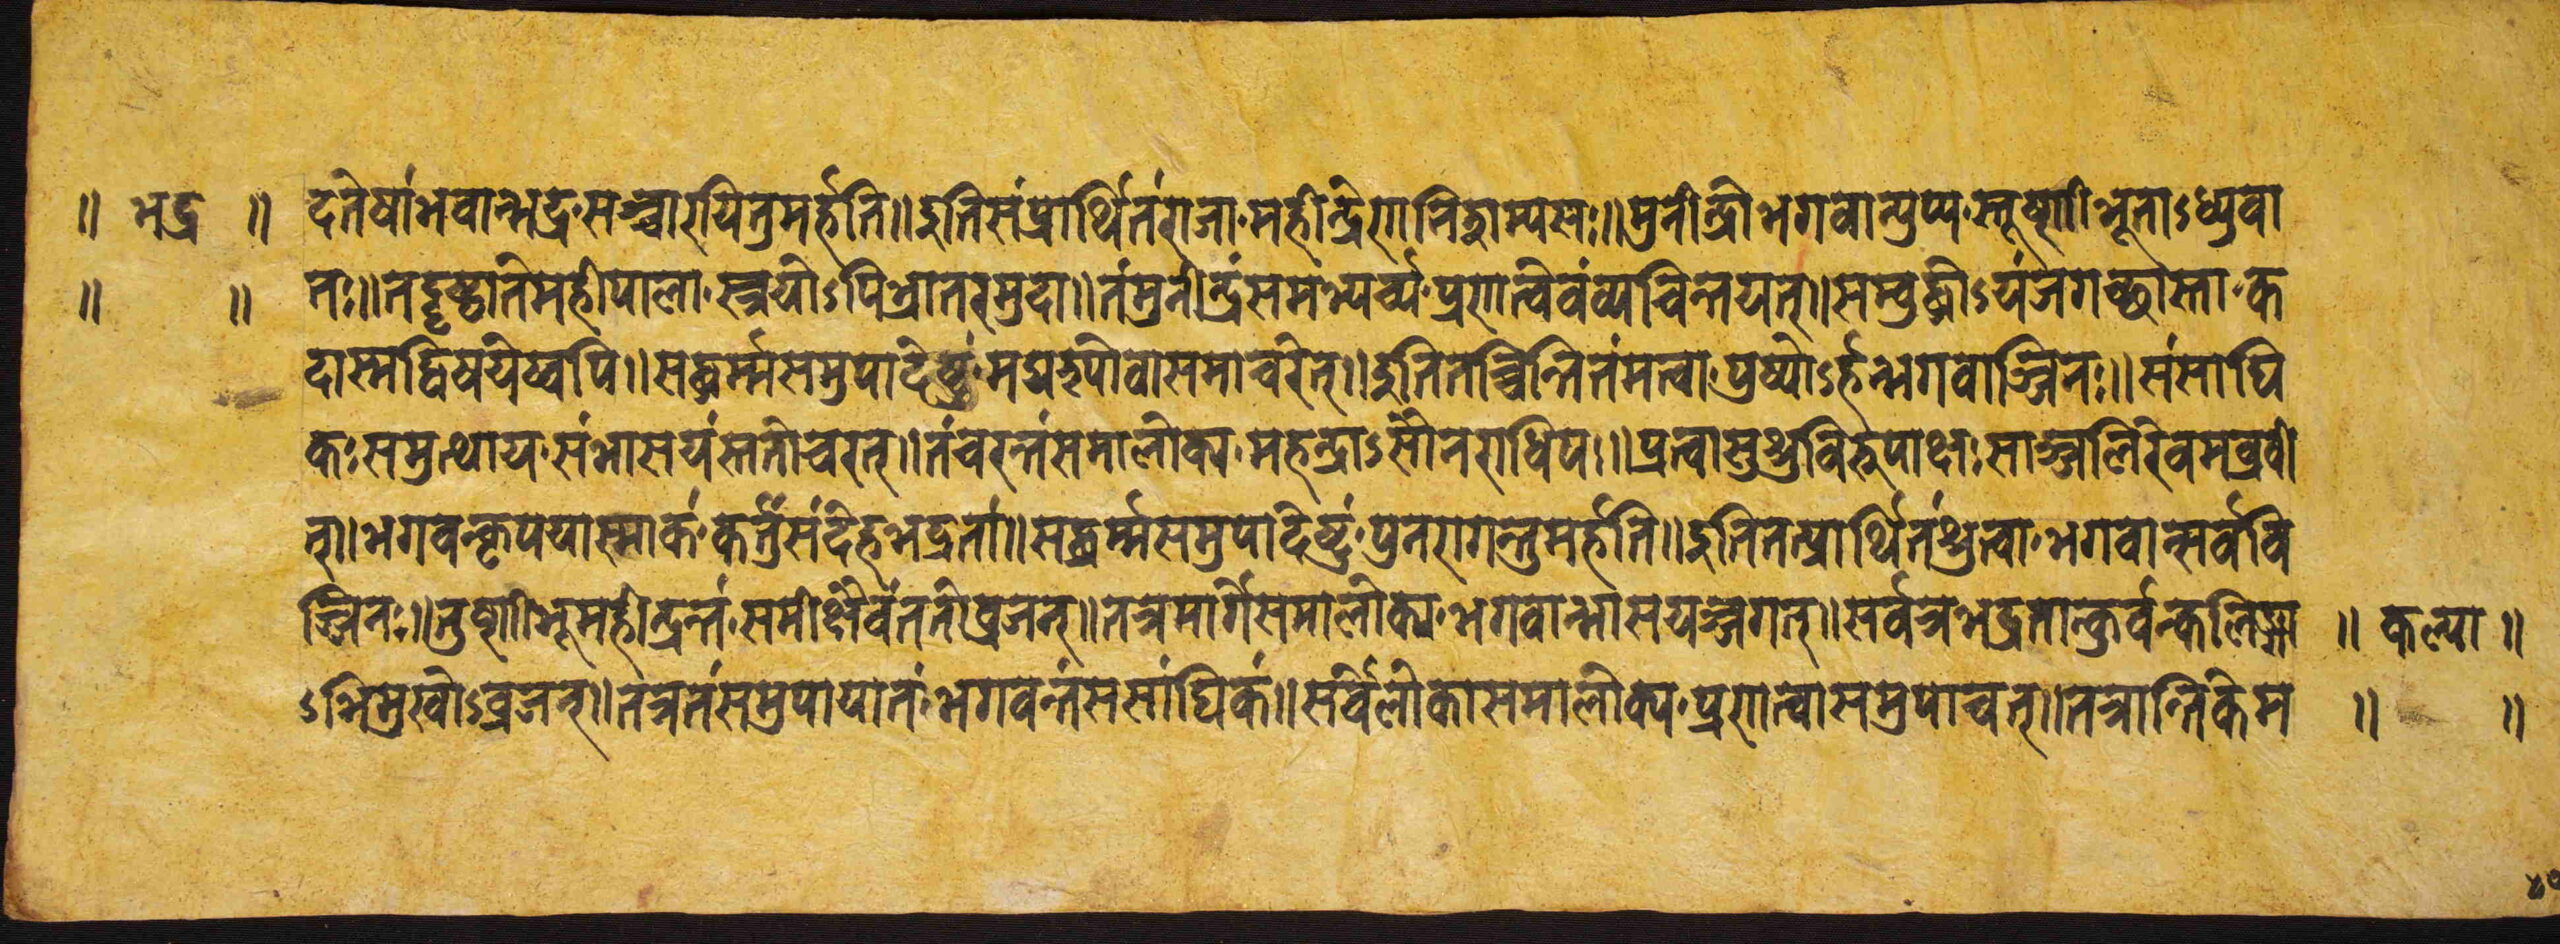 ॥ भद्र ॥ दतेषां भवान्भद्र सञ्चारयितुमर्हति॥ इति संप्रार्थितं राज्ञा महेन्द्रेण निशम्य सः॥ मुनीन्द्रो भगवान्पुष्प स्तूष्णीभूताऽध्युवा
॥ ॥ तः॥ तद्दृष्ट्वा ते महीपाला स्त्रयोऽपि भ्रातर मुदा॥ तं मुनीन्द्रं समभ्यर्च्य प्रणत्वैवं व्यचिन्तयत्॥ सम्बुद्धोऽयं जगच्छास्ता क
दास्मद्विषयेष्वपि॥ सद्धर्म्म समुपादेष्टुं मद्यरूपो वा समाचरेत्॥ इति तच्चिन्तितं मत्वा पुष्योऽर्हन्भगवाञ्जिनः॥ ससांघि
कः समुत्थाय संभासयंस्ततोचरत्॥ तं चरन्तं समालोक्य महन्द्राऽसौ नराधिपः॥ प्रत्वासुश्रुविरूपाक्षः साञ्जलिरेवमब्रवी
त्॥ भगवन्कृपयास्माकं कर्त्तुं संदेह भद्रतां॥ सद्धर्म्म समुपादेष्टुं पुनरागन्तुमर्हति॥ इति तत्प्रार्थितं श्रुत्वा भगवान्सर्वैवि
ञ्जिनः॥ तुष्णीभू महेन्द्रन्तं समीक्षैवं ततो व्रजत्॥ तत्र मार्गे समालोक्य भगवान्भासयञ्जगत्॥ सर्वत्र भद्रतान्कुर्वन्कलिङ्गा ॥ कल्या ॥
ऽभिमुखोऽव्रजत्॥ तत्र तं समुपायातं भगवन्तं ससांघिकं॥ सर्वे लोका समालोक्य प्रणत्वा समुपाचत्॥ तत्रान्तिके म ॥ ॥